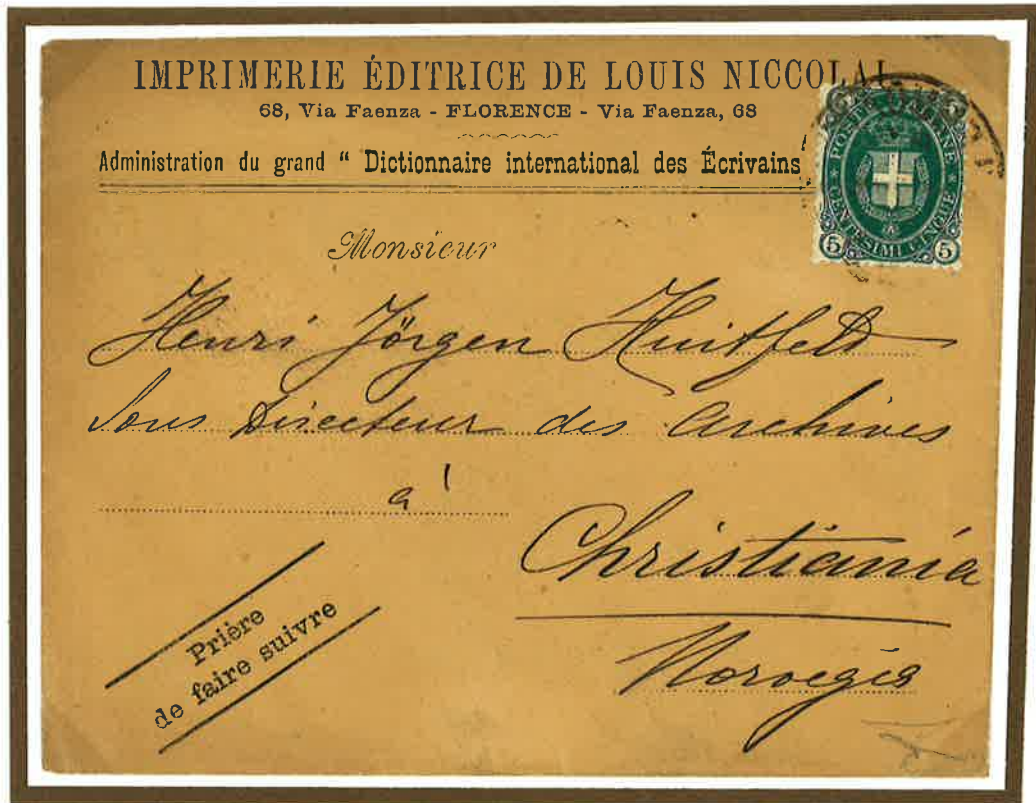 IMPRIMERIE ÉDITRICE DE LOUIS NICCOLAI
68, Via Faenza - FLORENCE - Via Faenza, 68
Administration du grand “ Dictionnaire international des Écrivains
5 POSTE ITALIANE 5
5 CENTESIMI CINQUE 5
Monsieur
Henri Jörgen Huitfeldt
Sous Directeur des Archives
à
Christiania
Norvegia
Prière
de faire suivre